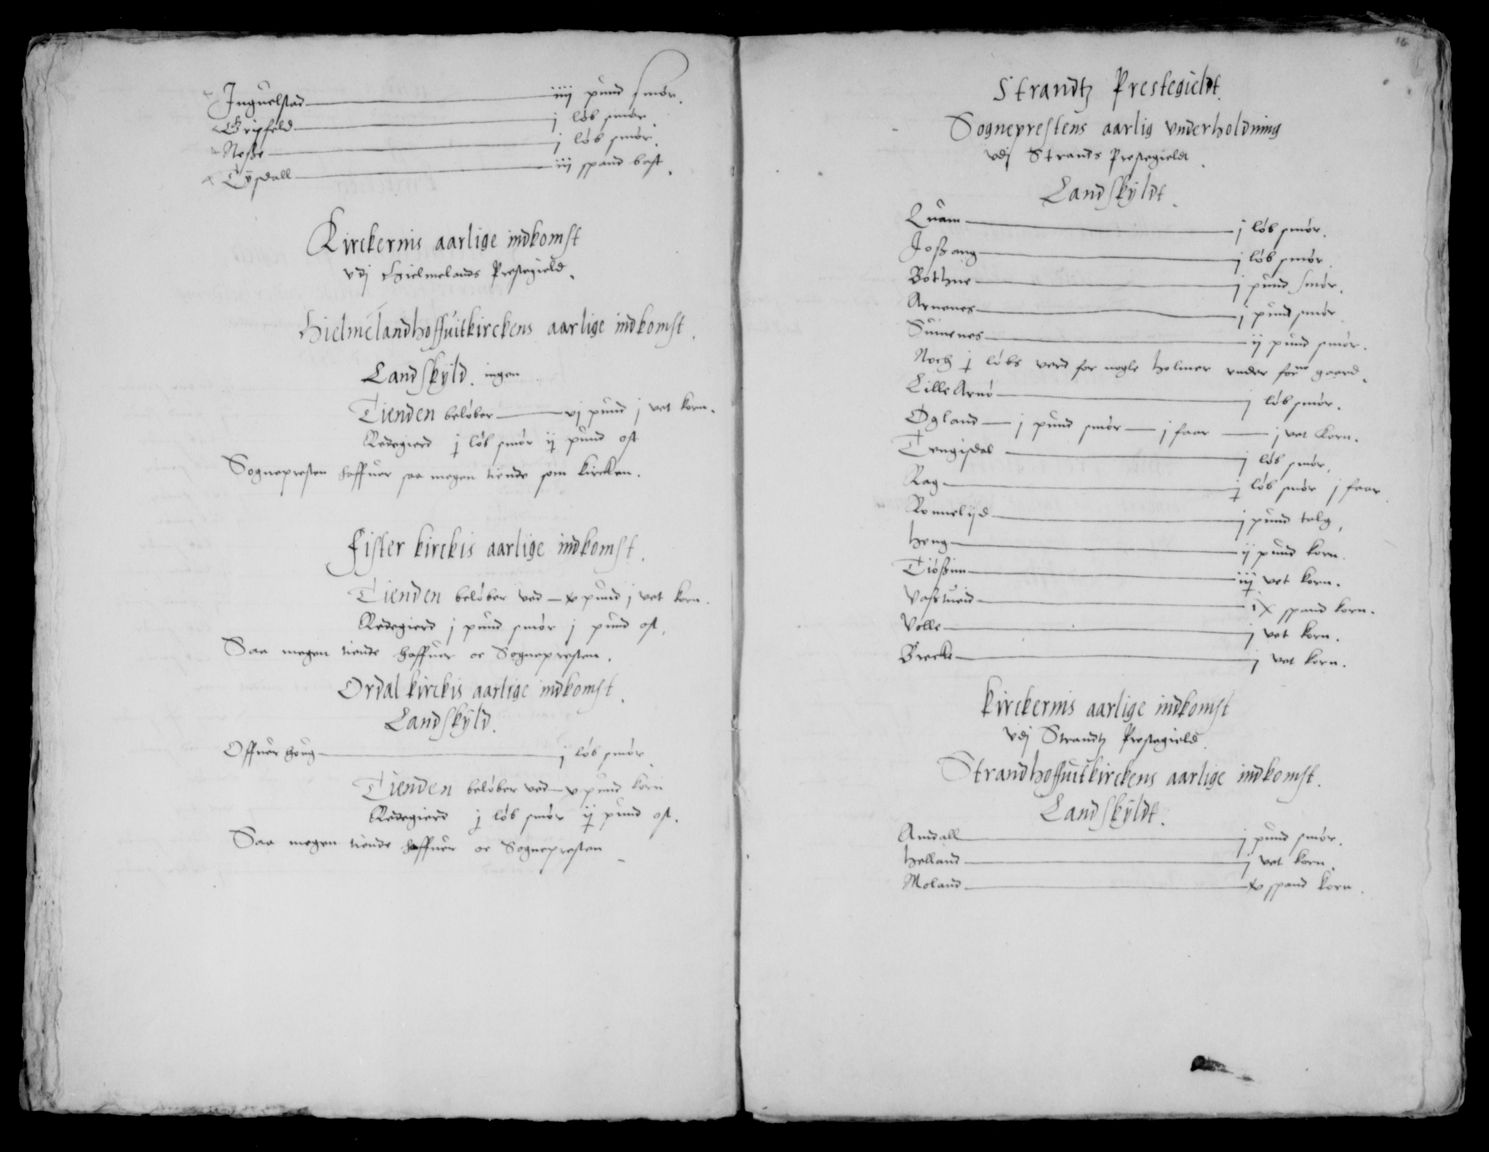 Inguelstad iiij pund smør.
Gripfeld j løb smør.
Nesse j løb smør.
Tÿsdall iij spand bast.
Kirckernis aarlige indkomst
vdj Hielmelands Prestegield.
Hielmelandhoffuitkirckens aarlige indkomst.
Landskÿld. ingen
Tienden beløber vj pund j vet korn.
Redegierd j løb smør ij pund ost
Sognepresten haffuer saa megen tiende som kircken.
Fister kirckis aarlige indkomst.
Tienden beløber ved x pund j vet korn.
Redegierd j pund smør j pund ost.
Saa megen tiende haffuer oc Sognepresten.
Ordal kirckis aarlige indkomst.
Landskÿld.
Offuerhoug j løb smør.
Tienden beløber ved v pund korn
Redegierd j løb smør ij pund ost.
Saa megen tiende haffuer oc Sognepresten
16
Strandtz Prestegieldt.
Sogneprestens aarlig vnderholdning
vdj Strands Prestegieldt.
Landskÿldt.
Quam j løb smør.
Jossang j løb smør.
Bothne j pund smør.
Arnenes j pund smør
Suinenes ij pund smør.
Noch j løbs verd for nogle holmer vnder forne gaard.
Lille Arnø j løb smør.
Øgland j pund smør j faar j vet korn.
Tengisdal j løb smør.
Rag j løb smør j faar.
Ronnelijd j pund talg.
Heng ij pund korn.
Tiøssim iij vet korn.
Vastueid ix spand korn.
Volle j vet korn.
Brecke j vet korn.
Kirckernis aarlige indkomst
vdj Strandtz Prestegield.
Strandhoffuitkirckens aarlige indkomst.
Landskÿldt.
Amdall j pund smør.
Helland j vet korn.
Moland x spand korn.